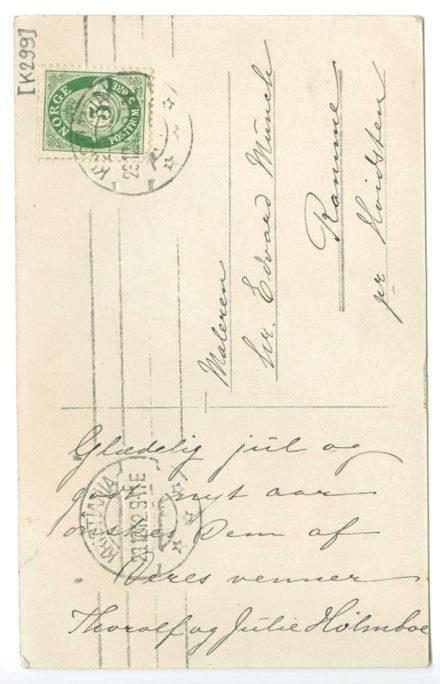 [K299]
NORGE
POSTFRIM
5
Maleren
hr. Edvard Münch
Ramme
pr Hvidsten
KRISTIANIA
23.12.12.9
E
Glædelig jul og
godt nyt aar
ønskes Dem af
Deres venner
Thorolf og Julie Holmboe